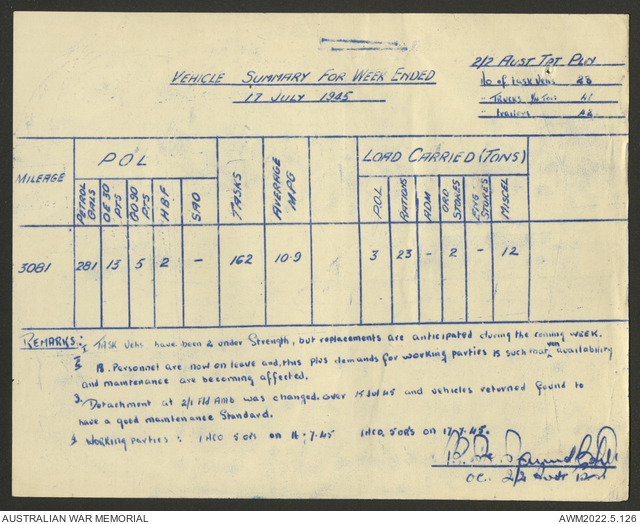 2/2 AUST TPT PLN
VEHICLE SUMMARY FOR WEEK ENDED
17 JULY 1945
No of task vehs 28
TRUCKS
Trailers
MILEAGE
P O L
PETROL GALS
OE 30 PTS
PTS
H.B.F
SAO
TASKS
AVERAGE M.P.G
LOAD CARRIED (TONS)
P.O.L
RATIONS
ADM
ORD STORES
ENG STORES
MISCEL
3081 281 13 5 2 - 162 10.9 3 23 - 2 - 12
REMARKS: 1 TASK Vehs have been 2 under Strength, but replacements are anticipated during the coming WEEK.
2 Personnel are, now on leave and, this plus demands for working parties is such that veh availability
and maintenance are becoming affected.
3. Detachment at 2/1 Fld Amb was changed over 15 Jul 45 and vehicles returned found to
have a good maintenance Standard.
4 Working parties: 1 NCO 5 ORs on 16.7.45 1 NCO, 5 ORs on 17.7.45.
O.C. 2/2
AUSTRALIAN WAR MEMORIAL
AWM2022.5.126